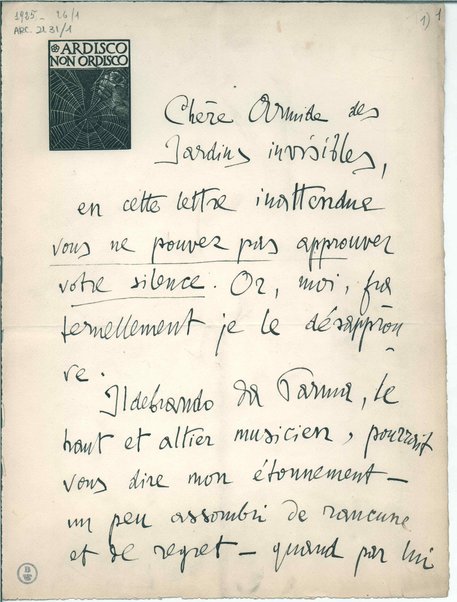 1925 - 26/1
ARC. 21 31/1
1) 1
ARDISCO
NON ORDISCO
Chère Armide des
Jardins invisibles,
en cette lettre inattendue
vous ne pouvez pas approuver
votre silence. Or, moi, fra
ternellement je le désapprou
ve.
Ildebrando da Parma, le
haut et altier musicien, pourrait
vous dire mon étonnement —
un peu assombri de rancune
et de regret — quand par lui